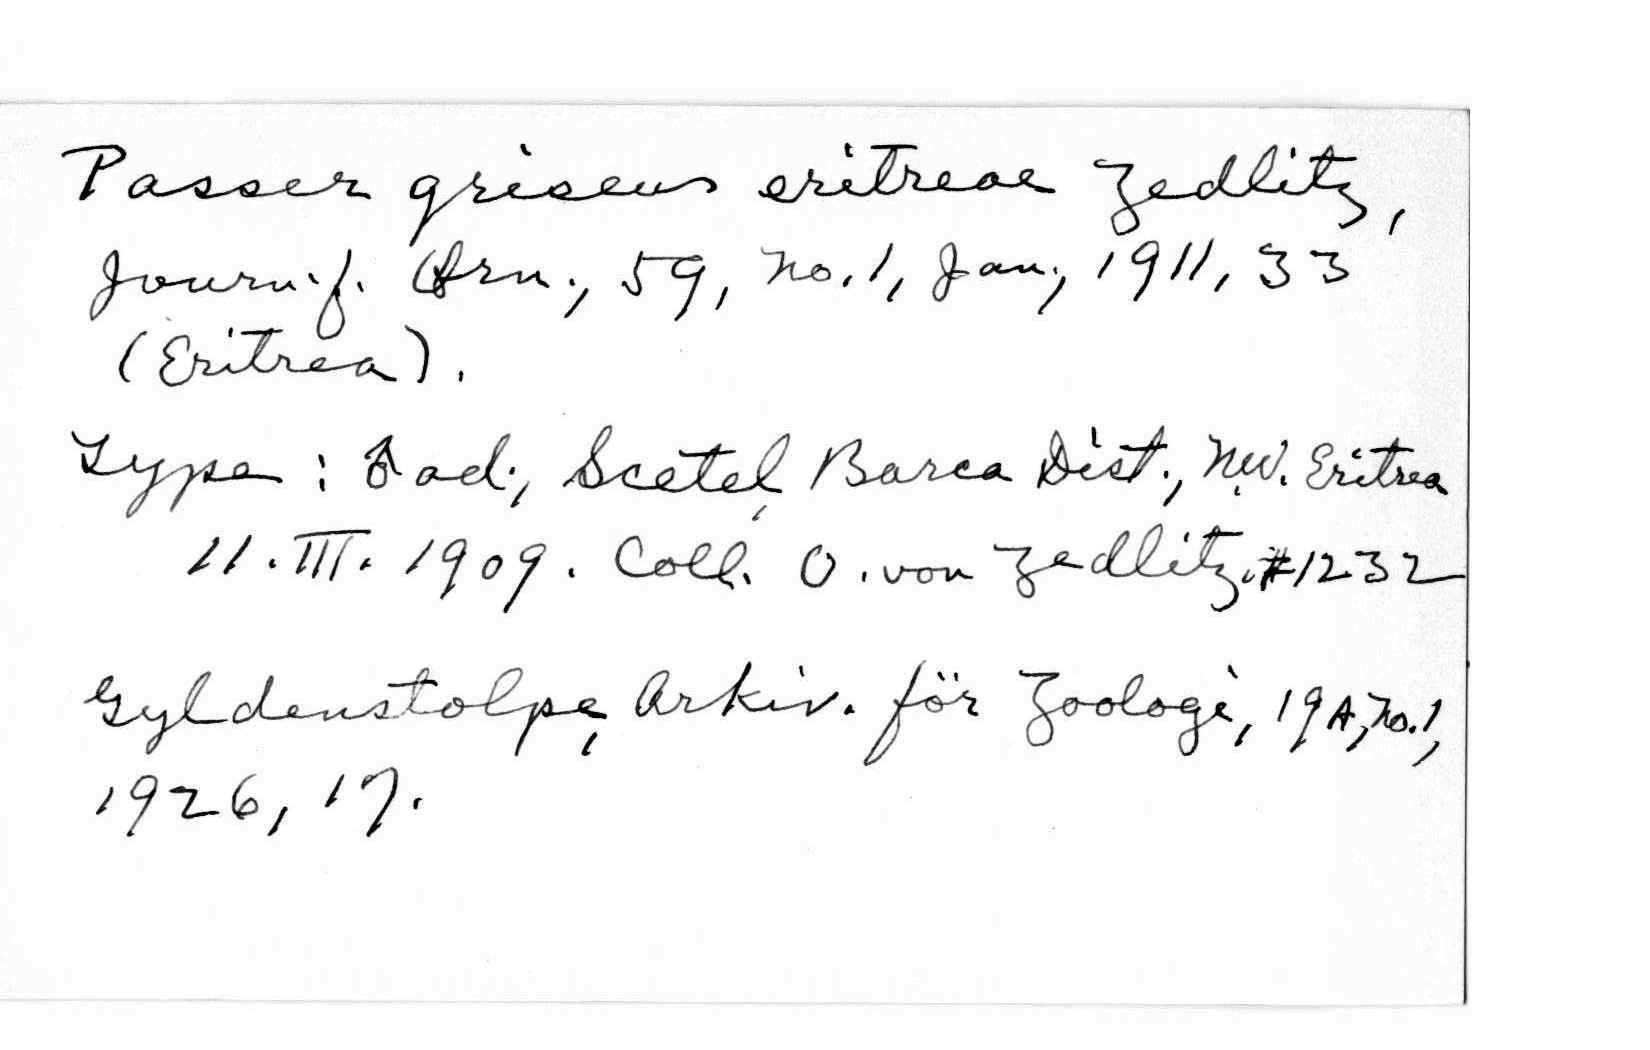 Passer griseus eritreae Zedlitz,
Journ. f. Orn., 59, no. 1, Jan., 1911, 33
(Eritrea).
Type: ♂ ad., Scetel, Barca Dist., N.W. Eritrea
11. III. 1909. Coll. O. von Zedlitz. #1232
Gyldenstolpe, Arkiv. för Zoologi, 19A, no. 1,
1926, 17.